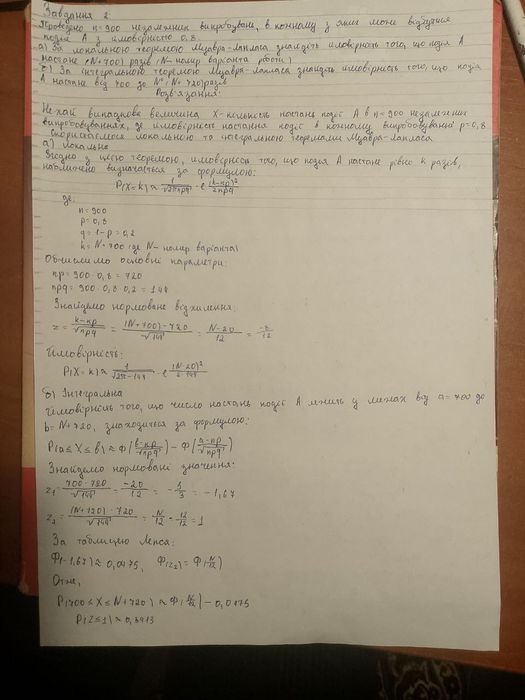 Завдання 2.
Проведено n=900 незалежних випробувань, в кожному з яких може відбутися
подія A з імовірністю 0,8.
а) За локальною теоремою Муавра-Лапласа знайдіть імовірність того, що подія A
настане (N+700) разів (N-номер варіанта роботи)
б) За інтегральною теоремою Муавра-Лапласа знайдіть імовірність того, що подія
A настане від 700 до N+720 разів
Розв'язання:
Нехай випадкова величина X-кількість настань події A в n=900 незалежних
випробовуваннях, де імовірність настання події в кожному випробовуванні p=0,8
Скористаємося локальною та інтегральною теоремами Муавра-Лапласа
а) Локальна
Згідно з цією теоремою, імовірність того, що подія A настане рівно k разів,
наближено визначається за формулою:
P(X=k) ≈ 1/√2πnpq · e (k-np)²/2npq
де:
n=900
p=0,8
q=1-p=0,2
k=N+700 (де N- номер варіанта)
Обчислимо основні параметри:
np=900·0,8=720
npq=900·0,8·0,2=144
Знайдемо нормоване відхилення:
z= k-np/√npq = (N+700)-720/√144 = N-20/12 =
Ймовірність:
P(X=k) ≈ 1/√2π·144 · e (N-20)²/2·144
б) Інтегральна
Ймовірність того, що число настань події A лежить у межах від a=700 до
b=N+720, знаходиться за формулою:
P(a≤X≤b) ≈ Ф(b-np/√npq) - Ф(a-np/√npq)
Знайдемо нормовані значення:
z₁= 700-720/√144 = -20/12 = -5/3 = -1,67
z₂= (N+720)-720/√144 = N/12 = 12/12 = 1
За таблицею Лапласа:
Ф(-1,67) ≈ 0,0475, Ф(z₂) = Ф(N/12)
Отже,
P(700≤X≤N+720) ≈ Ф(N/12) - 0,0475
P(Z≤1) ≈ 0,8413